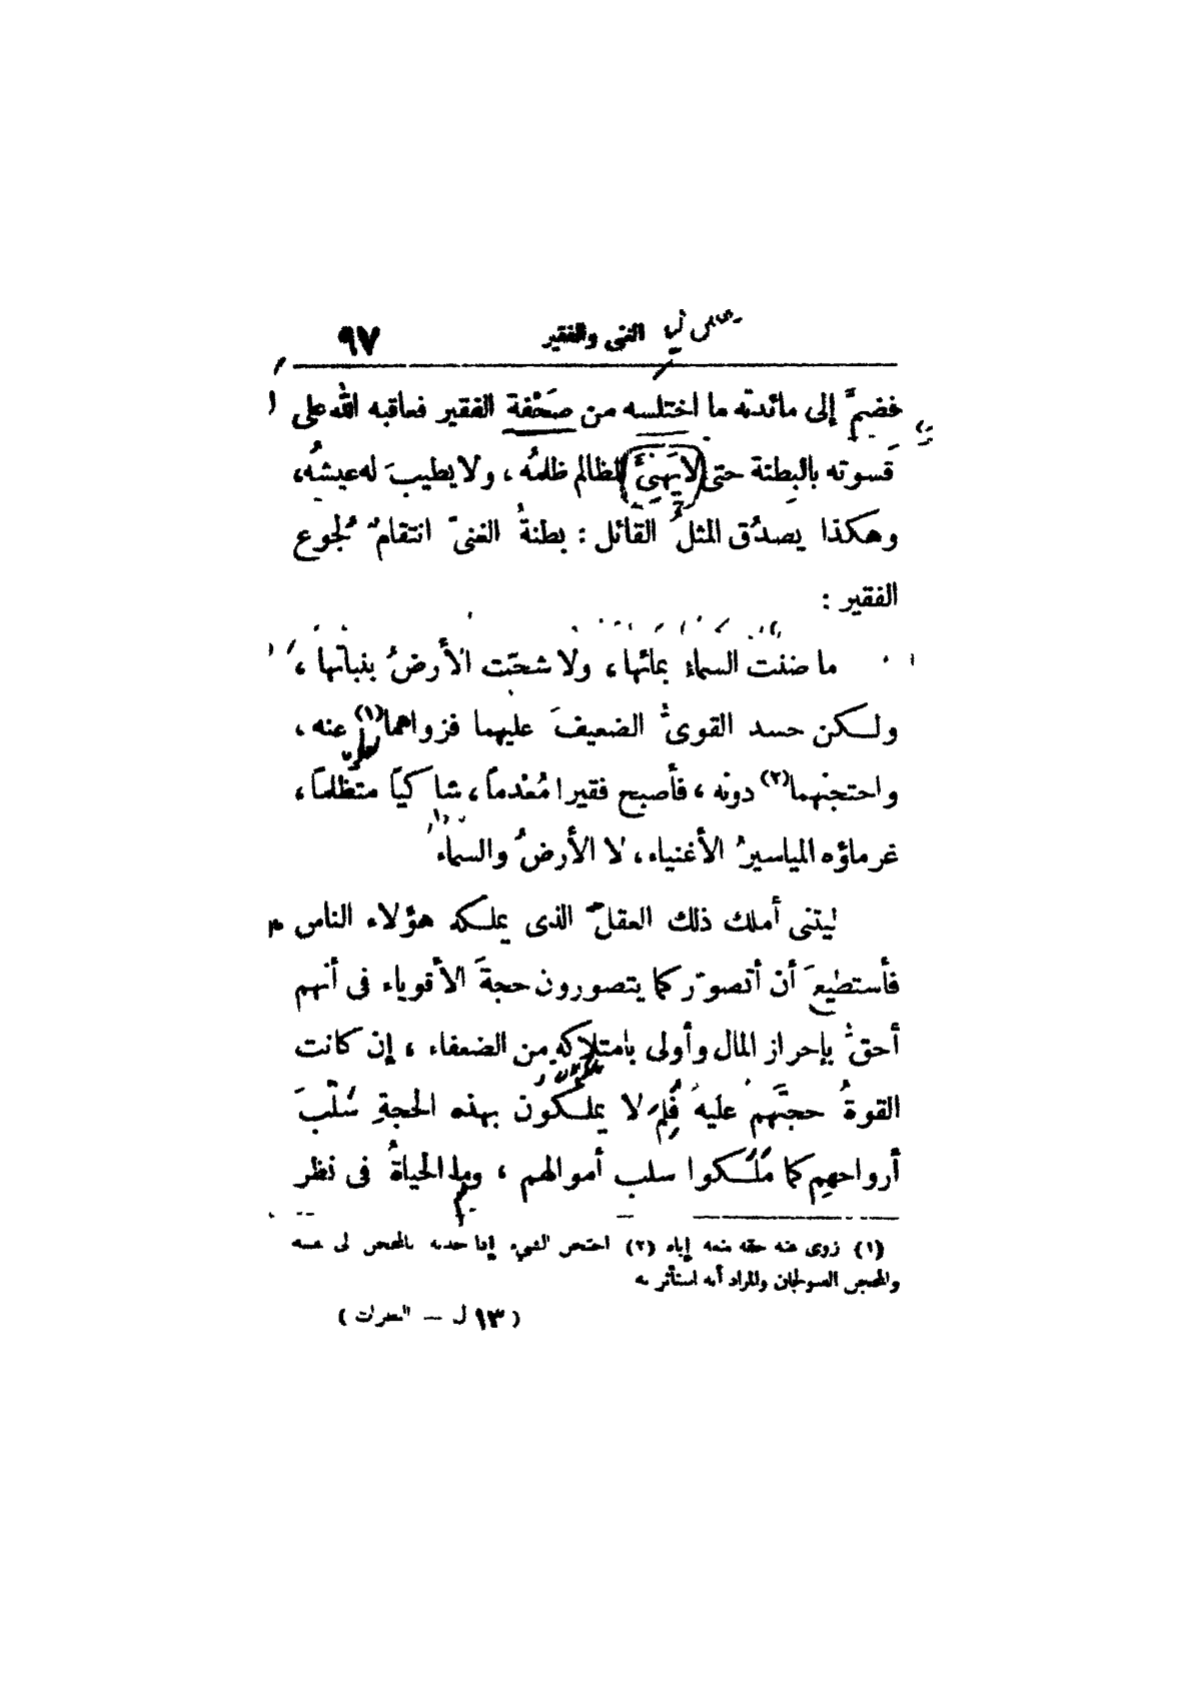 الغنى والفقير ٩٧
فضمَّ إلى مائدته ما اختلسه من صَحْفة الفقير فعاقبه الله على
قسوته بالبِطنة حتى لا يَهنِئَ للظالم ظلمُه ، ولا يطيبَ له عيشُه،
وهكذا يصدُق المثلُ القائل : بطنةُ الغنىّ انتقامٌ لجوع
الفقير :
ما ضنَّت السماءُ بمائها، ولا شحّت الأرضُ بنباتها ،
ولكن حسد القوىُّ الضعيفَ عليهما فزواهما(١) عنه ،
واحتجنهما(٢) دونه ، فأصبح فقيرا مُعْدماً ، شاكياً متظلماً ،
غرماؤه المياسيرُ الأغنياء، لا الأرضُ والسماءُ
ليتنى أملك ذلك العقلَ الذى يملكه هؤلاء الناس
فأستطيعَ أن أتصوّر كما يتصورون حجةَ الأقوياء فى أنهم
أحقُّ بإحراز المال وأولى بامتلاكه من الضعفاء ، إن كانت
القوةُ حجتَهم عليه فَلِمَ لا يملكون بهذه الحجةِ سَلْبَ
أرواحهم كما مَلَكوا سلب أموالهم ، وما الحياةُ فى نظر
(١) زوى عنه حقه منعه إياه (٢) احتجن الشيء إذا جذبه بالمحجن الى نفسه
والمحجن الصولجان والمراد أنه استأثر به
( ١٣ ل — النظرات )